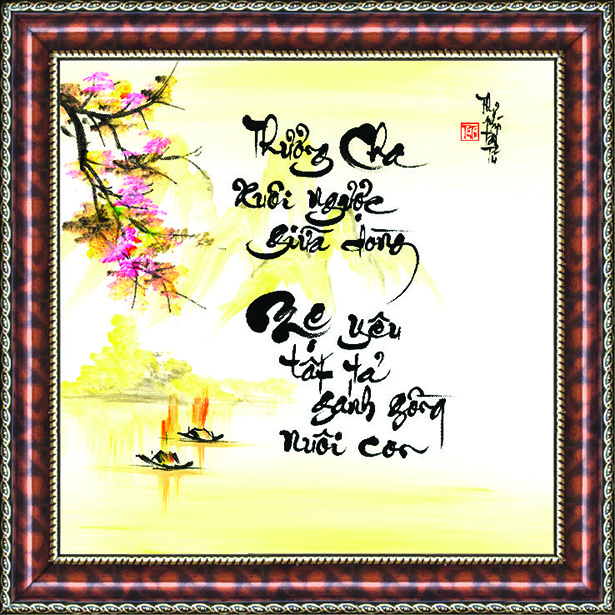 Thương Cha
Xuôi ngược
giữa dòng
Mẹ yêu
tất tả
gánh gồng
nuôi con